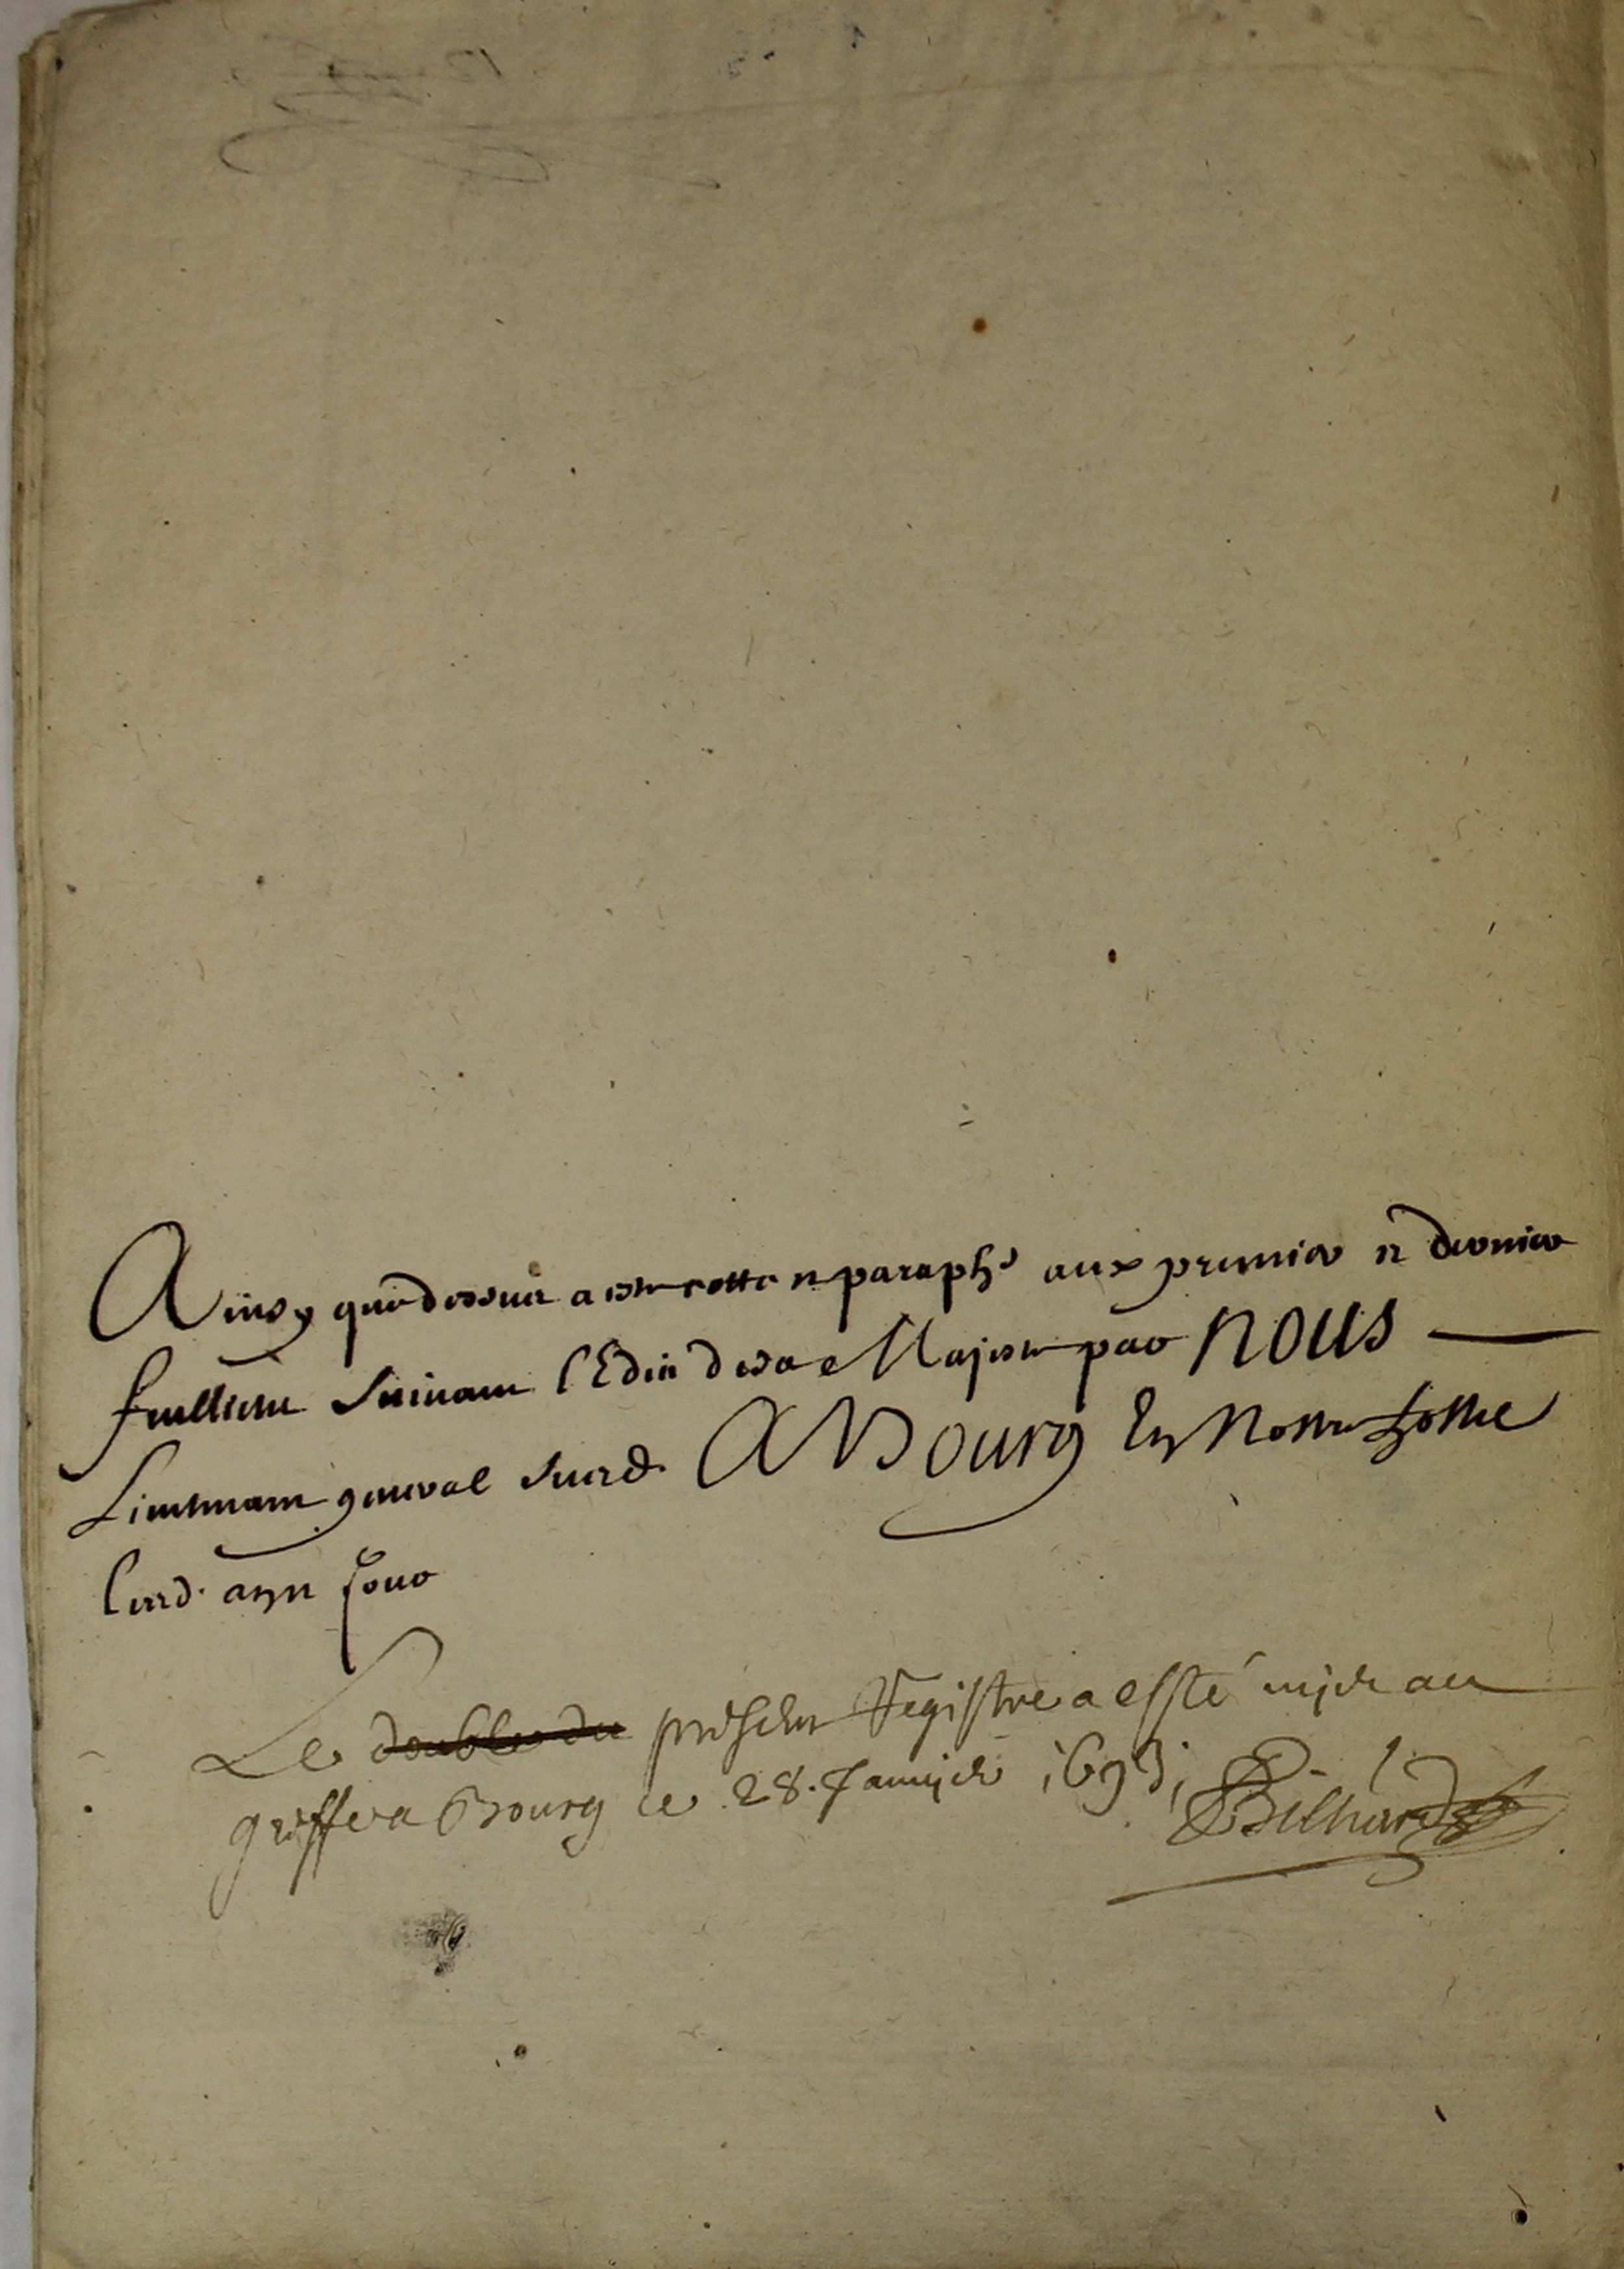 Ainsy que dessus a este cotte et paraphé aux premier et dernier
feuillets suivant l'Edit de sa Majeste par nous
Lieutenant general susd. A Bourg En Nostre hostel
Lesd. an et jour
Le double du present Registre a esté mis au
greffe a Bourg le 28. Janvier 1693
Bilhard